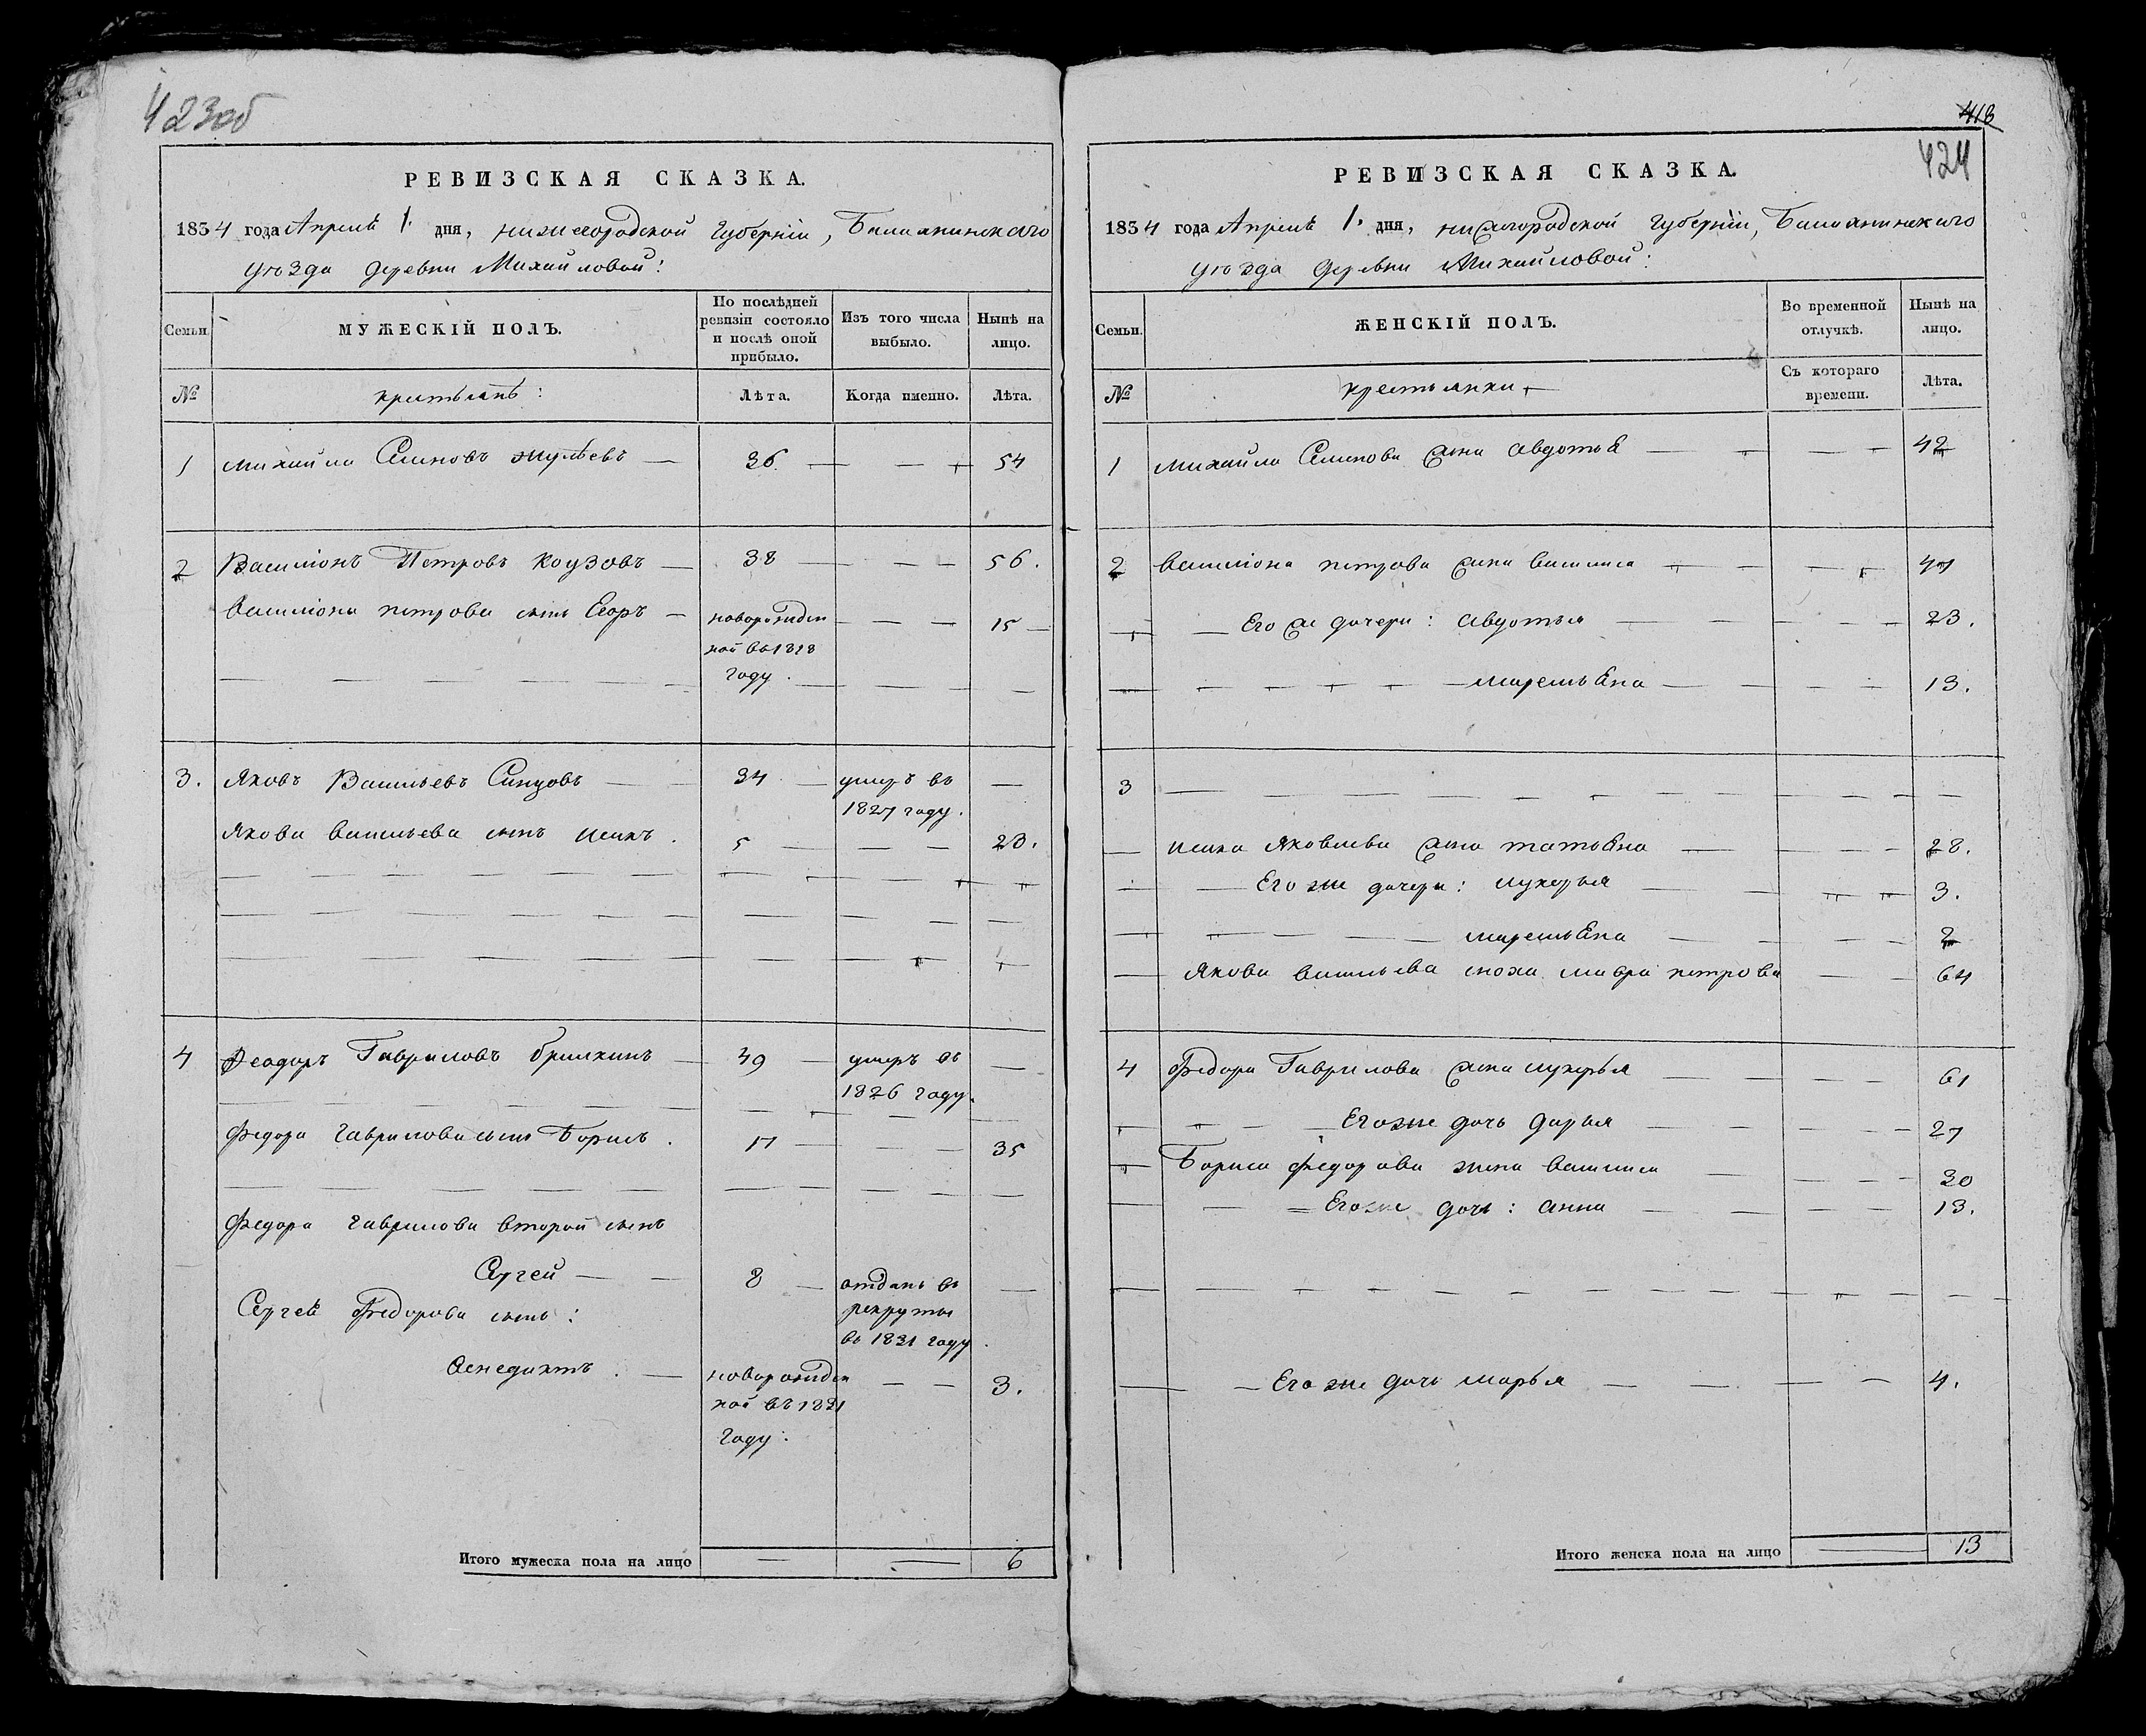 423об
РЕВИЗСКАЯ СКАЗКА.
1834 года Апреля 1. дня, нижегородской Губернiи, Балахнинскаго
уѣзда деревни Михайловой:
Семьи.
МУЖЕСКІЙ ПОЛЪ.
По послѣдней ревизіи состояло и послѣ оной прибыло.
Изъ того числа выбыло.
Нынѣ на лицо.
№
крестьянъ:
Лѣта.
Когда именно.
Лѣта.
1 михайла Семеновъ — 36 — — — 54
2 Василіонъ Петровъ Коузовъ — 38 — — — 56.
Василіона петрова сынъ Егоръ — новорожден — — — 15 —
ной въ 1818
году.
3. Яковъ Васильевъ Синцовъ — 34 — умеръ въ —
1827 году.
Якова васильева сынъ исакъ. 5 — — — 23.
4 Феодоръ Гавриловъ — 49 — умеръ въ —
1826 году.
Федора гаврилова сынъ Борисъ. 17 — — — 35
Федора гаврилова второй сынъ
Сергей — — 8 — отданъ въ —
рекруты
въ 1831 году.
Сергея Федорова сынъ:
Венедиктъ. — новорожден — — 3.
ной въ 1831
году.
Итого мужеска пола на лицо — — 6
413
424
РЕВИЗСКАЯ СКАЗКА.
1834 года Апреля 1. дня, нижегородской Губернiи, Балахнинскаго
уѣзда деревни Михайловой:
Семьи.
ЖЕНСКІЙ ПОЛЪ.
Во временной отлучкѣ.
Нынѣ на лицо.
№
крестьянки
Съ котораго времени.
Лѣта.
1 михайла Семенова жена авдотья — — — — 42
2 василіона петрова жена василиса — — — — 47
— — Его же дочери: авдотья — — — — 23.
— — — — — — маремьяна — — — — 13.
3 — — — — — — — — — —
— исака яковлева жена татьяна — — — — 28.
— — Его же дочери: лукерья — — — — 3.
— — — — — маремьяна — — — — 2
— Якова васильева сноха мавра петрова — — 64
4 Федора Гаврилова жена лукерья — — — — 61
— — — — Его же дочь дарья — — — — 27
— Бориса федорова жена василиса — — — — 30
— — — Его же дочь: анна — — — — 13.
— — Его же дочь марья — — — — 4.
Итого женска пола на лицо — 13